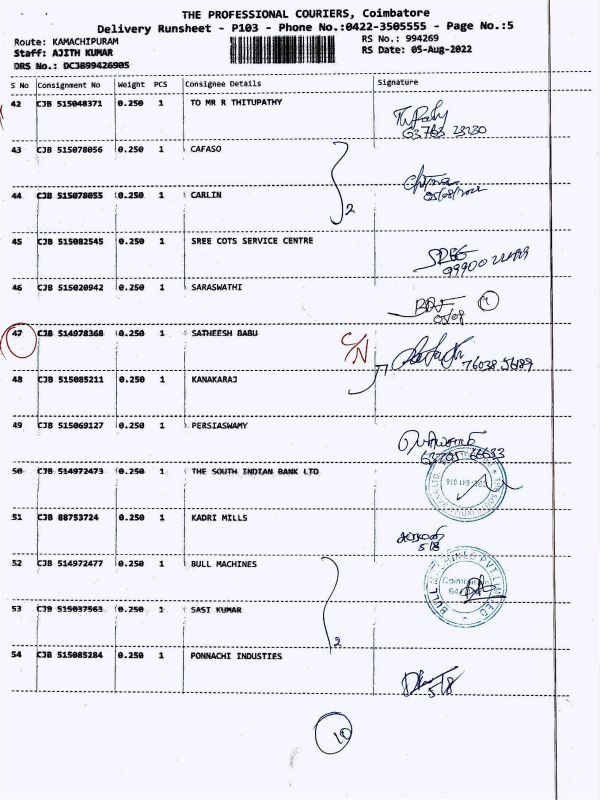 THE PROFESSIONAL COURIERS, Coimbatore
Delivery Runsheet - P103 - Phone No.:0422-3505555 - Page No.:5
Route: KAMACHIPURAM RS No.: 994269
Staff: AJITH KUMAR RS Date: 05-Aug-2022
DRS No.: DCJB99426905
S No Consignment No Weight PCS Consignee Details Signature
42 CJB 515048371 0.250 1 TO MR R THITUPATHY
43 CJB 515078056 0.250 1 CAFASO
2
05/08/2022
44 CJB 515078055 0.250 1 CARLIN
45 CJB 515082545 0.250 1 SREE COTS SERVICE CENTRE
46 CJB 515020942 0.250 1 SARASWATHI
05/08
47 CJB 514978368 0.250 1 SATHEESH BABU
C/N
76038 56189
48 CJB 515085211 0.250 1 KANAKARAJ
49 CJB 515069127 0.250 1 PERSIASWAMY
50 CJB 514972473 0.250 1 THE SOUTH INDIAN BANK LTD
51 CJB 88753724 0.250 1 KADRI MILLS
5/8
52 CJB 514972477 0.250 1 BULL MACHINES
53 CJB 515037563 0.250 1 SASI KUMAR
2
54 CJB 515085284 0.250 1 PONNACHI INDUSTIES
5/8